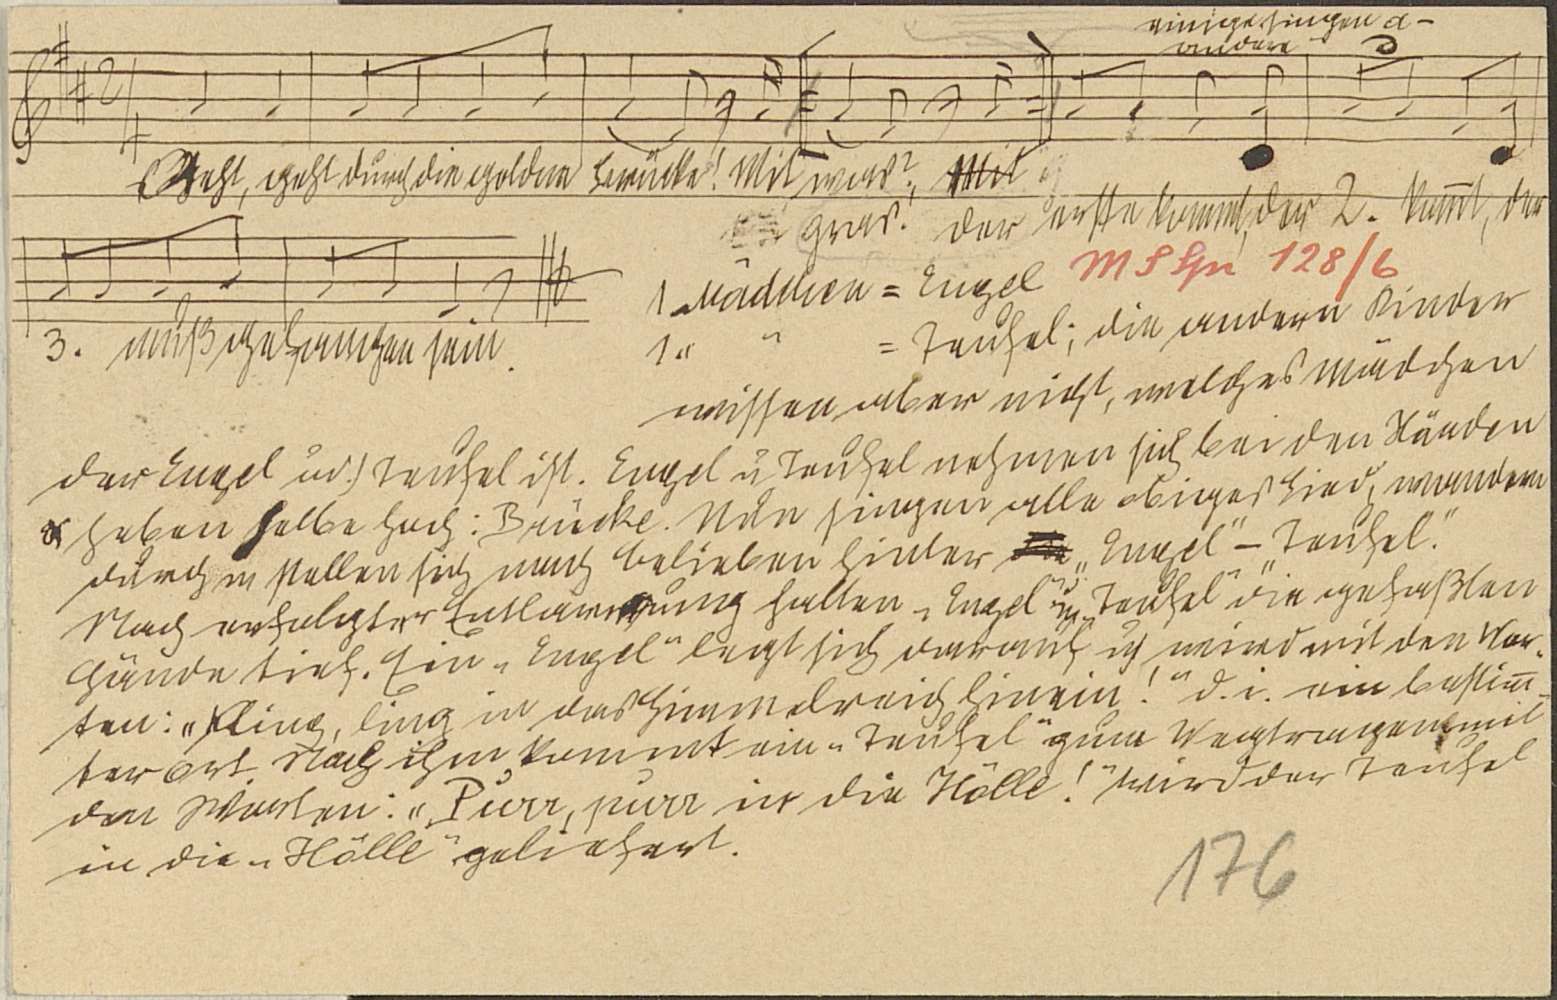 einige singen a -
andere
Geht, geht durch die goldene Brücke! Mit was? Mit
gras! der erste kommt, der 2. kom̅t, der
3. muß gefangen sein.
1 Mädchen = Engel MS Spr 128/6
1 " " = Teufel; die andern Kinder
wissen aber nicht, welches Mädchen
der Engel u.) Teufel ist. Engel u Teufel nehmen sich bei den Händen
& heben selbe hoch: Brücke. Nun singen alle obiges Lied, wandern
durch u stellen sich nach Belieben hinter die „Engel" – Teufel."
Nach erfolgter Entlarvung halten „Engel" u „Teufel" die gefaßten
Hände tief. Ein „Engel" legt sich darauf u wird mit den Wor-
ten: „Kling, ling in das Himmelreich hinein!" d. i. ein bestim̅-
ter Ort. Nach ihm kommt ein „Teufel" zum Wegtragen mit
den Worten: „Purr, purr in die Hölle!" wird der Teufel
in die „Hölle" geliefert.
176